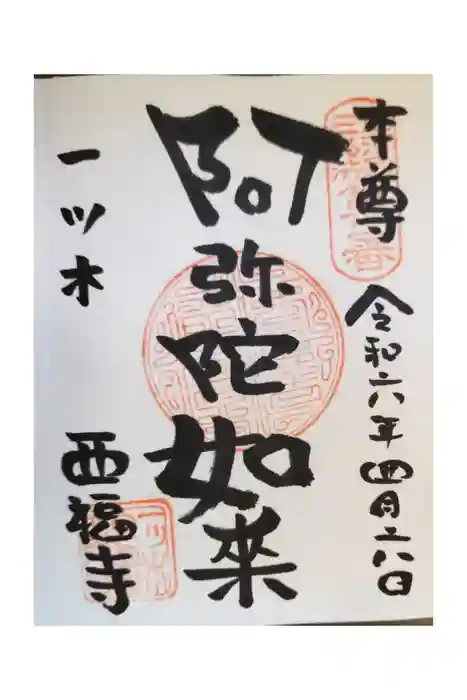 本尊
令和六年四月二八日
阿弥陀如来
一ツ木
西福寺